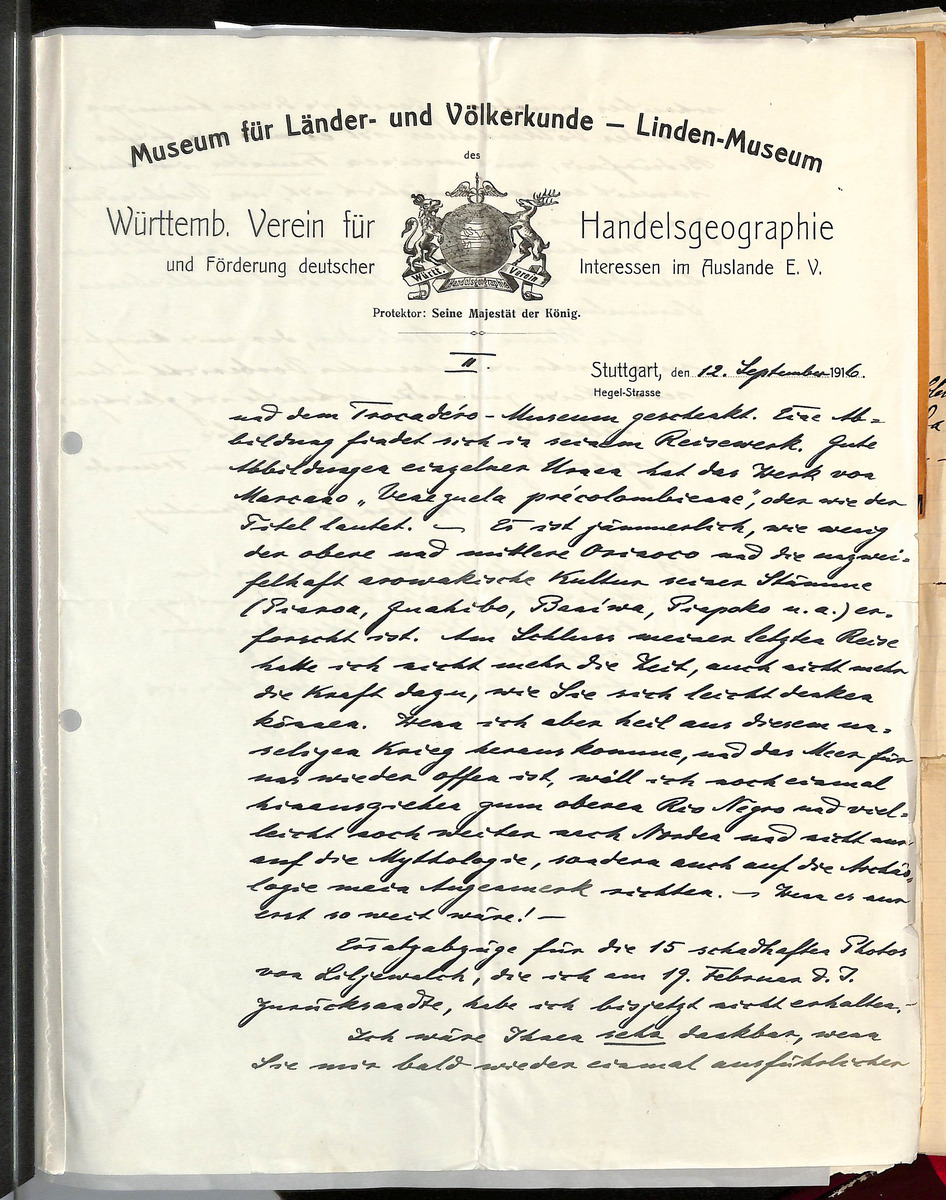 Museum für Länder- und Völkerkunde – Linden-Museum
des
Württemb. Verein für Handelsgeographie
und Förderung deutscher Interessen im Auslande E. V.
Württ. Verein
Handelsgeographie
Protektor: Seine Majestät der König.
II.
Stuttgart, den 12. September 1916.
Hegel-Strasse
und dem Trocadéro-Museum geschenkt. Eine Ab-
bildung findet sich in seinem Reisewerk. Gute
Abbildungen einzelner Urnen hat das Werk von
Marcano „Venezuela précolombienne", oder wie der
Titel lautet. – Es ist jämmerlich, wie wenig
der obere und mittlere Orinoco und die unzwei-
felhaft arowakische Kultur seiner Stämme
(Piaroa, Guahibo, Baniwa, Piapoko u. a.) er-
forscht ist. Am Schluss meiner letzten Reise
hatte ich nicht mehr die Zeit, auch nicht mehr
die Kraft dazu, wie Sie sich leicht denken
können. Wenn ich aber heil aus diesem un-
seligen Krieg herauskomme, und das Meer für
uns wieder offen ist, will ich noch einmal
hinausziehen zum oberen Rio Negro und viel-
leicht noch weiter nach Norden und nicht nur
auf die Mythologie, sondern auch auf die Archäo-
logie mein Augenmerk richten. – Wenn es nur
erst so weit wäre! –
Ersatzabzüge für die 15 schadhaften Photos
von Liljewalch, die ich am 19. Februar d. J.
zurücksandte, habe ich bisjetzt nicht erhalten. –
Ich wäre Ihnen sehr dankbar, wenn
Sie mir bald wieder einmal ausführlicher